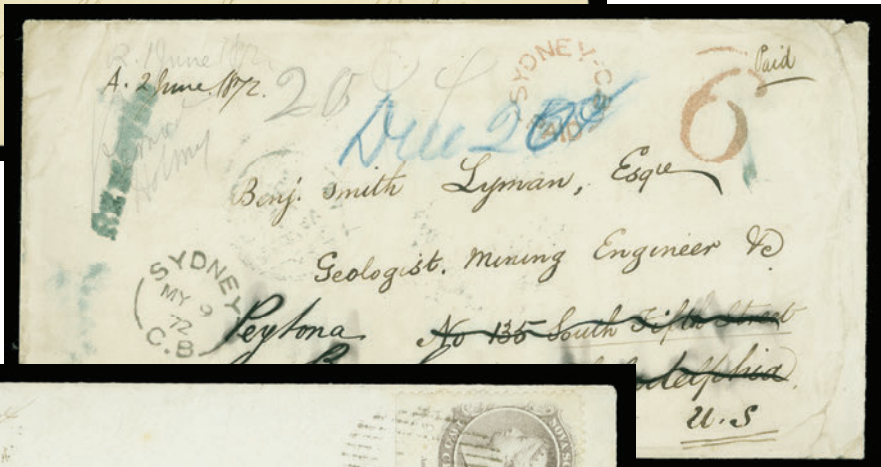 R. 1 June 1872
A. 2 June. 1872.
20
SYDNEY. C.
PAID
6
Paid
Due 20
Benj. Smith Lyman, Esqre
Geologist. Mining Engineer &c
SYDNEY
MY 9
72
C.B
Peytona
No 135 South Fifth Street
delphia
U.S
NOVA SC